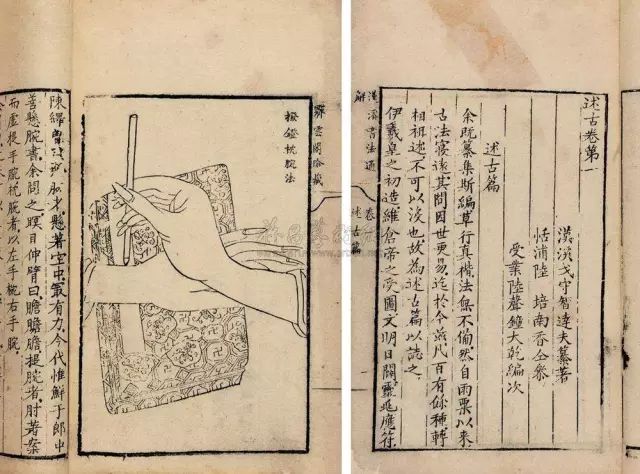 述古卷第一
漢溪戈守智達夫纂著
恬浦陸培南香仝參
受業陸聲鐘大乾編次
述古篇
余既纂集斯編草行真楷法無不備然自雨粟以來
古法寖遠其間因世更易迄於今茲凡百有餘種轉
相祖述不可以沒也故為述古篇以誌之
伊羲皇之初造維倉帝之受圖文明日闢靈兆應符
漢溪書法通解
卷一
述古篇
雲閣
撥鐙枕腕法
陳繹曾 懸著空中最有力今代惟鮮于郎中
善懸腕書余問之瞑目伸臂曰膽膽膽提腕者肘著案
而虛提手腕枕腕者以左手枕右手腕